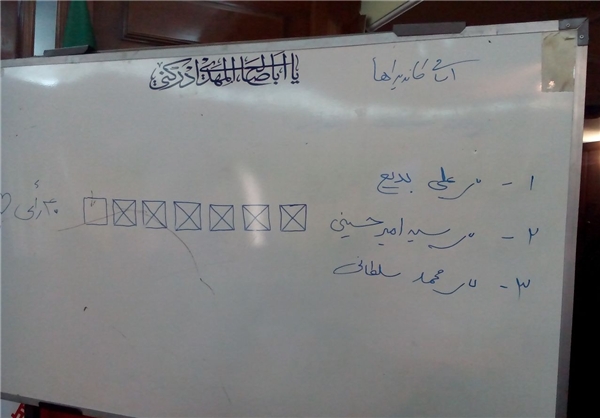 یا اباصالح المهدی ادرکنی
اسامی کاندیداها
۱ - علی بدیع
۲ - سید امیر حسینی
۳ - محمد سلطانی
۳۰ رأی